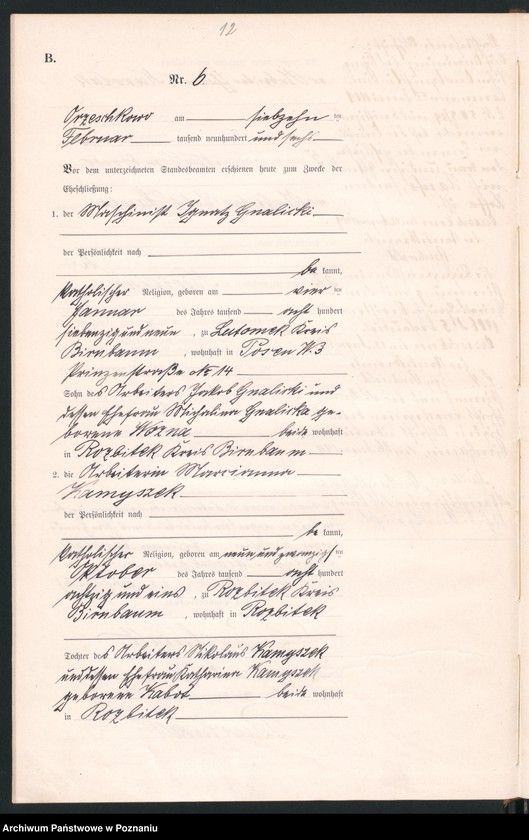 12
B.
Nr. 6
Orzeschkowo am siebzehn ten
Februar tausend neunhundert und sechs
Vor dem unterzeichneten Standesbeamten erschienen heute zum Zwecke der
Eheschließung:
1. der Maschinist Ignatz Gnalicki
der Persönlichkeit nach
be kannt,
katholischer Religion, geboren am vier ten
Januar des Jahres tausend acht hundert
siebenzig und neun, zu Lutomek Kreis
Birnbaum, wohnhaft in Posen W. 3
Prinzenstraße № 14
Sohn des Arbeiters Jakob Gnalicki und
dessen Ehefrau Michalina Gnalicka ge-
borene Wozna beide wohnhaft
in Rozbitek Kreis Birnbaum
2. die Arbeiterin Marcianna
Kamyszek
der Persönlichkeit nach
be kannt,
katholischer Religion, geboren am neun und zwanzig ten
Oktober des Jahres tausend acht hundert
achtzig und eins, zu Rozbitek Kreis
Birnbaum, wohnhaft in Rozbitek
Tochter des Arbeiters Nikolaus Kamyszek
und dessen Ehefrau Katharina Kamyszek
geborene Kabot beide wohnhaft
in Rozbitek
Archiwum Państwowe w Poznaniu